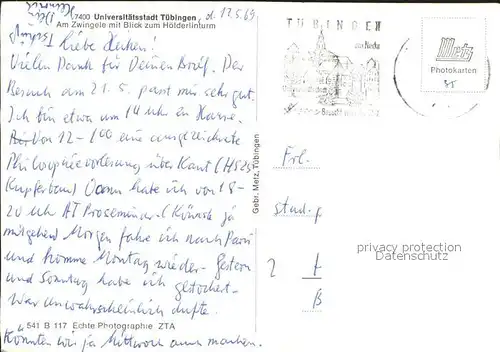 7400 Universitätsstadt Tübingen, d. 12.5.69
Am Zwingele mit Blick zum Hölderlinturm
Dein
Heinrich
Liebe Heiken!
Vielen Dank für Deinen Brief. Der
Besuch am 21.5. passt mir sehr gut.
Ich bin etwa um 14 uhr zu Hause.
Von 12-1⁰⁰ eine ausgezeichnete
Philosophievorlesung über Kant (HS25
Kupferbau) Dann habe ich von 18-
20 uhr AT Proseminar. (Könnte ja
mitgehen) Morgen fahre ich nach Paris
und komme Montag wieder. Gestern
und Sonntag habe ich
War unwahrscheinlich dufte.
541 B 117 Echte Photographie ZTA
Könnten wir ja Mittwoch auch machen.
Gebr. Metz, Tübingen
TÜBINGEN
am Neckar
Metz
Photokarten
Frl.
stud. p
2
privacy protection
Datenschutz